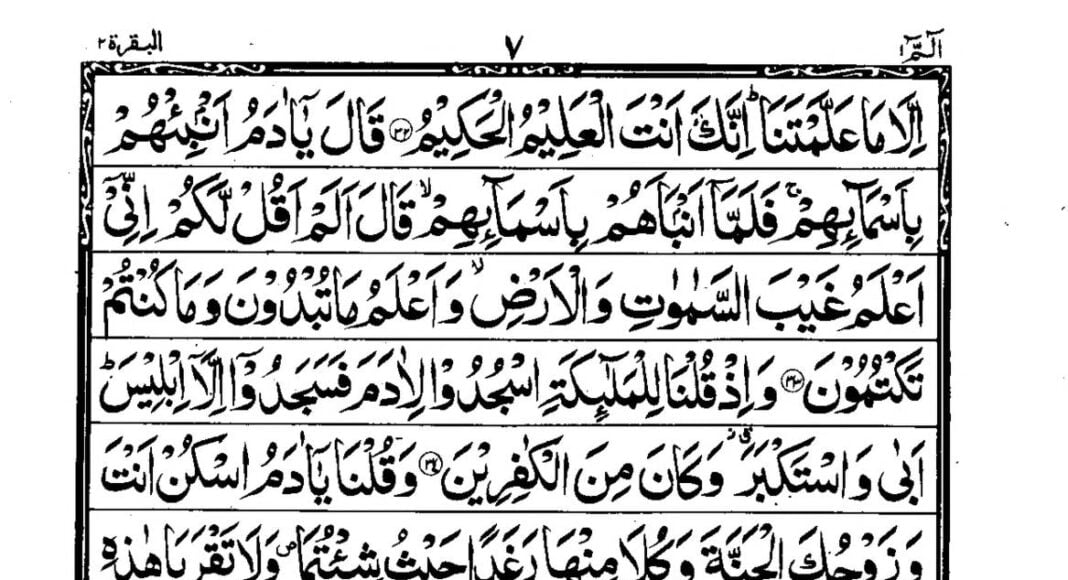 الٓمّٓ ١ ٧ البقرة ٢
اِلَّا مَا عَلَّمْتَنَا ؕ اِنَّكَ اَنْتَ الْعَلِيْمُ الْحَكِيْمُ ﴿۳۲﴾ قَالَ يٰۤاٰدَمُ اَنْۢبِئْهُمْ
بِاَسْمَآىِٕهِمْ ۚ فَلَمَّاۤ اَنْۢبَاَهُمْ بِاَسْمَآىِٕهِمْ ۙ قَالَ اَلَمْ اَقُلْ لَّكُمْ اِنِّيْۤ
اَعْلَمُ غَيْبَ السَّمٰوٰتِ وَالْاَرْضِ ۙ وَاَعْلَمُ مَا تُبْدُوْنَ وَمَا كُنْتُمْ
تَكْتُمُوْنَ ﴿۳۳﴾ وَاِذْ قُلْنَا لِلْمَلٰٓىِٕكَةِ اسْجُدُوْا لِاٰدَمَ فَسَجَدُوْۤا اِلَّاۤ اِبْلِيْسَ ؕ
اَبٰى وَاسْتَكْبَرَ ۗ وَكَانَ مِنَ الْكٰفِرِيْنَ ﴿۳۴﴾ وَقُلْنَا يٰۤاٰدَمُ اسْكُنْ اَنْتَ
وَزَوْجُكَ الْجَنَّةَ وَكُلَا مِنْهَا رَغَدًا حَيْثُ شِئْتُمَا ۪ وَلَا تَقْرَبَا هٰذِهِ